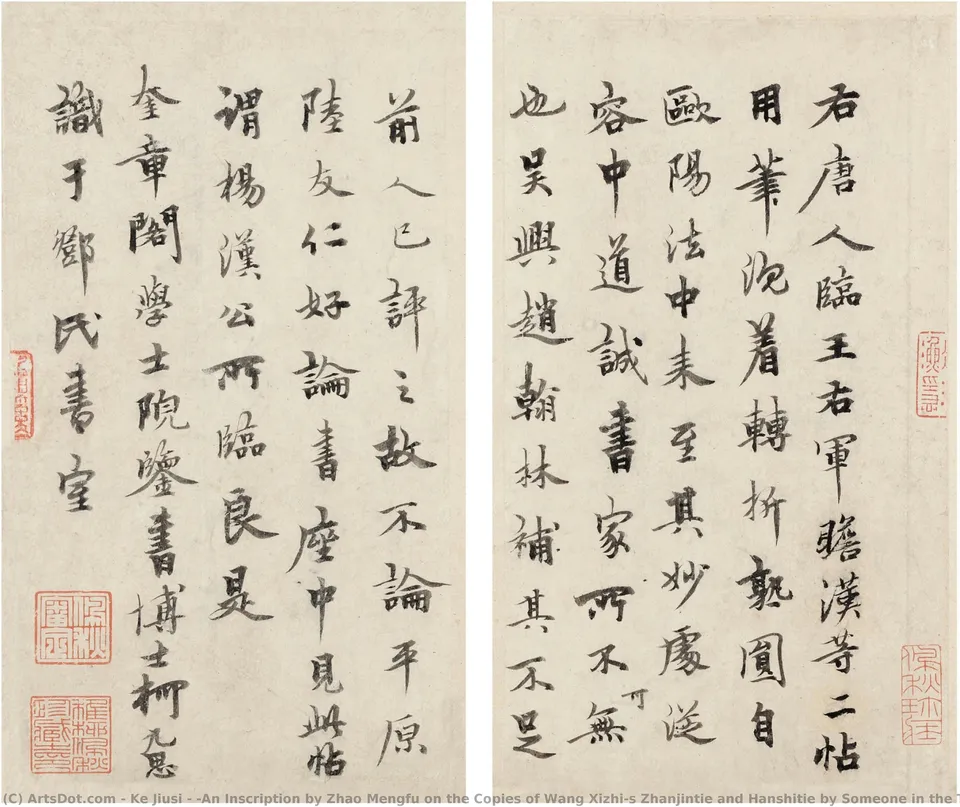 右唐人臨王右軍瞻漢等二帖
用筆沉着轉折熟圓自
歐陽法中来至其妙處從
容中道誠書家所不可無
也吴興趙翰林補其不足
前人已評之故不論平原
陸友仁好論書座中見此帖
謂楊漢公所臨良是
奎章閣學士院鑒書博士柯九思
識于鄧氏書室
(C) ArtsDot.com - Ke Jiusi - -An Inscription by Zhao Mengfu on the Copies of Wang Xizhi-s Zhanjintie and Hanshitie by Someone in the